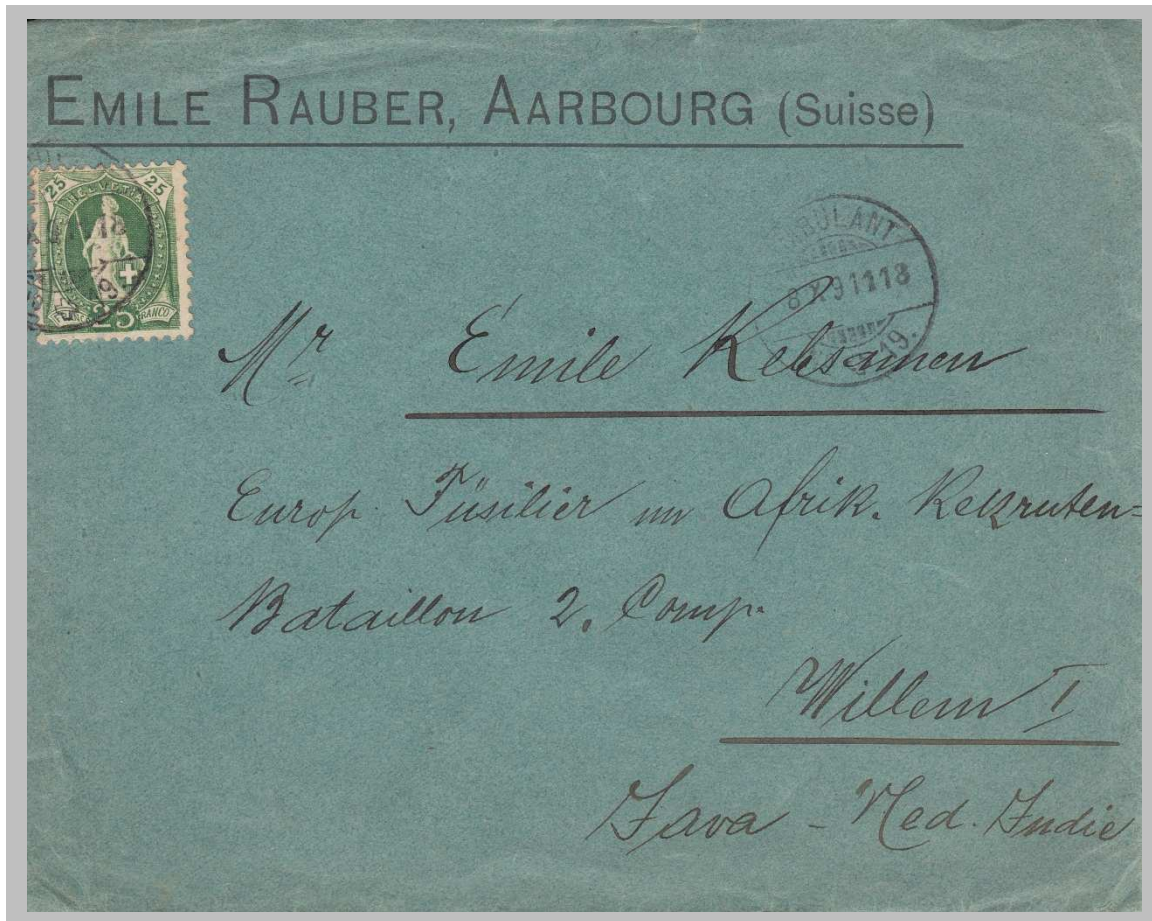 EMILE RAUBER, AARBOURG (Suisse)
25 25
HELVETIA
25 FRANCO
AMBULANT
8 X 91 11 18
19.
Mr Emile Kebsamen
Europ. Füsilier im Afrik. Rekruten=
Bataillon 2. Comp.
Willem I
Java - Ned. Indie